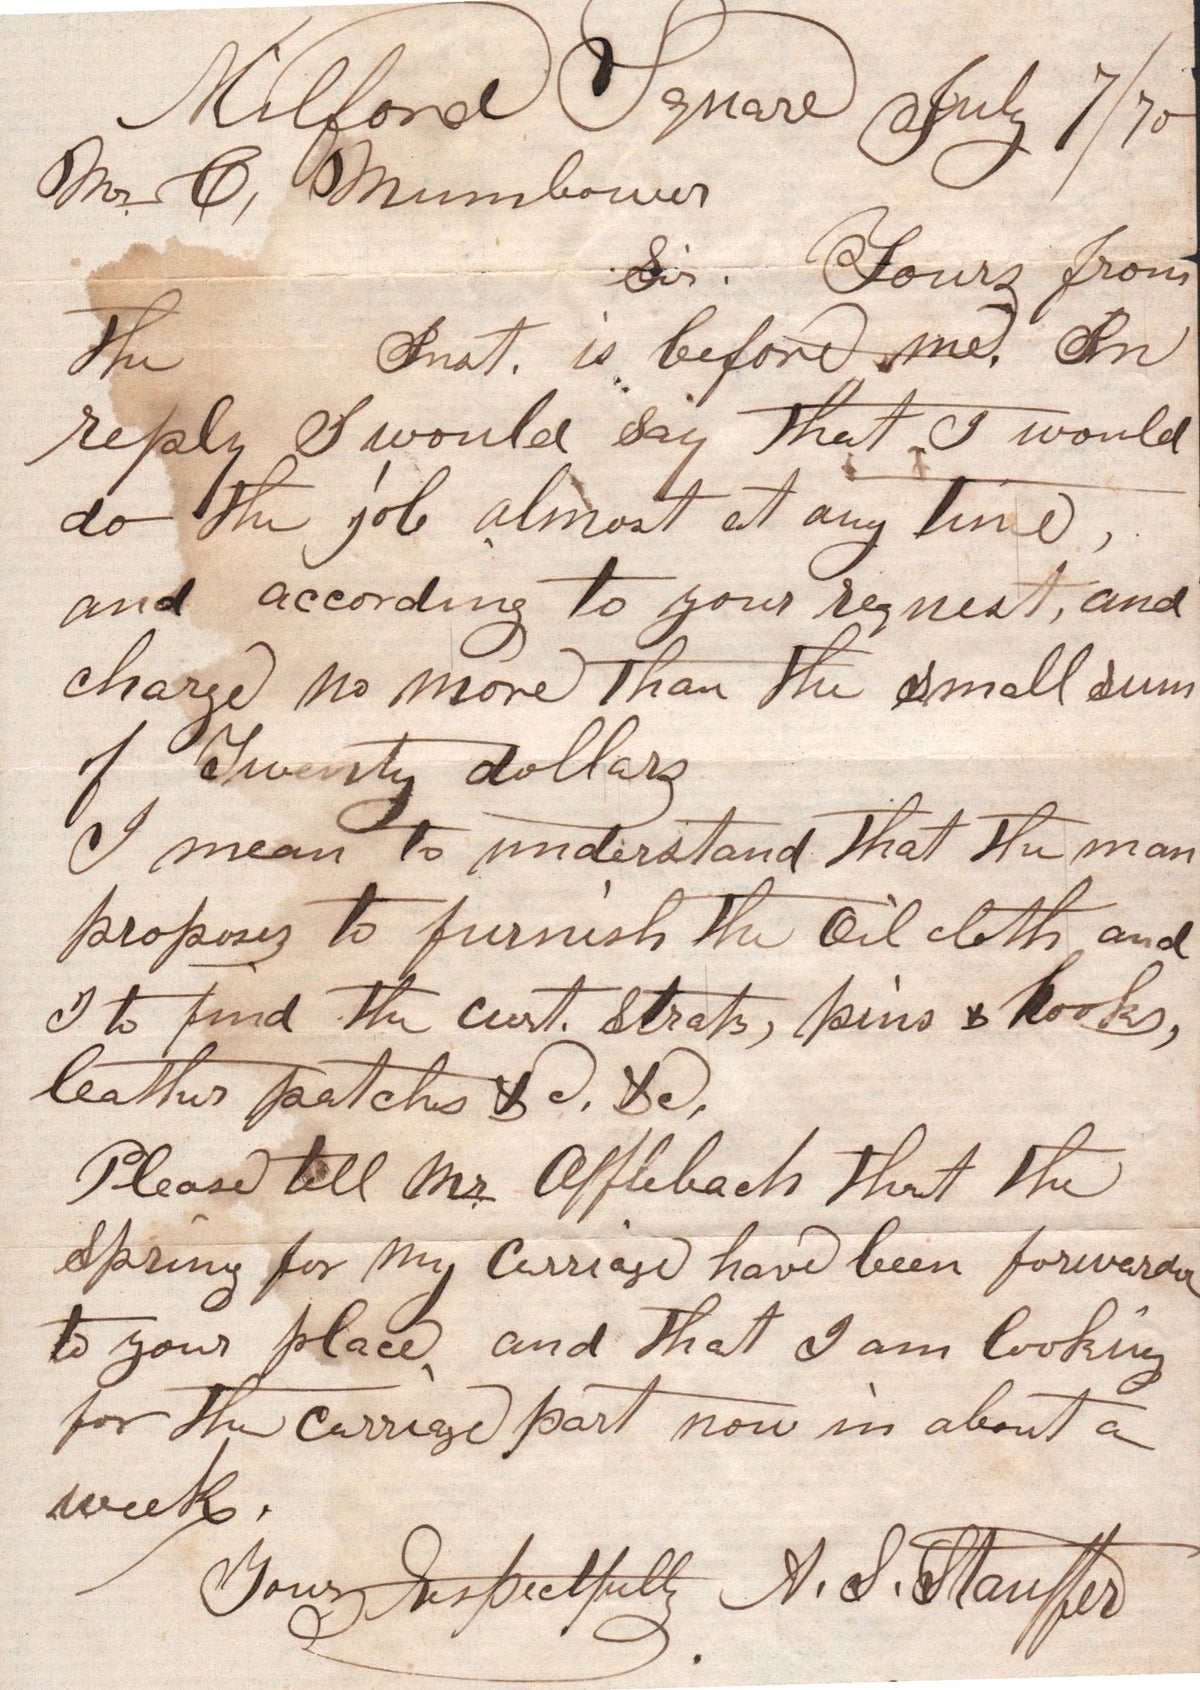 Milford Square July 7/70
Mr C, Mumbower
Sir. Yours from
the Inst. is before me. In
reply I would say that I would
do the job almost at any time,
and according to your request, and
charge no more than the small sum
of Twenty dollars
I mean to understand that the man
proposes to furnish the Oil cloth and
I to find the curt. straps, pins & hooks,
leather patches &c. &c.
Please tell Mr Afflebach that the
Spring for my Carriage have been forwarded
to your place, and that I am looking
for the carriage part now in about a
week.
Yours Respectfully A. S. Stauffer